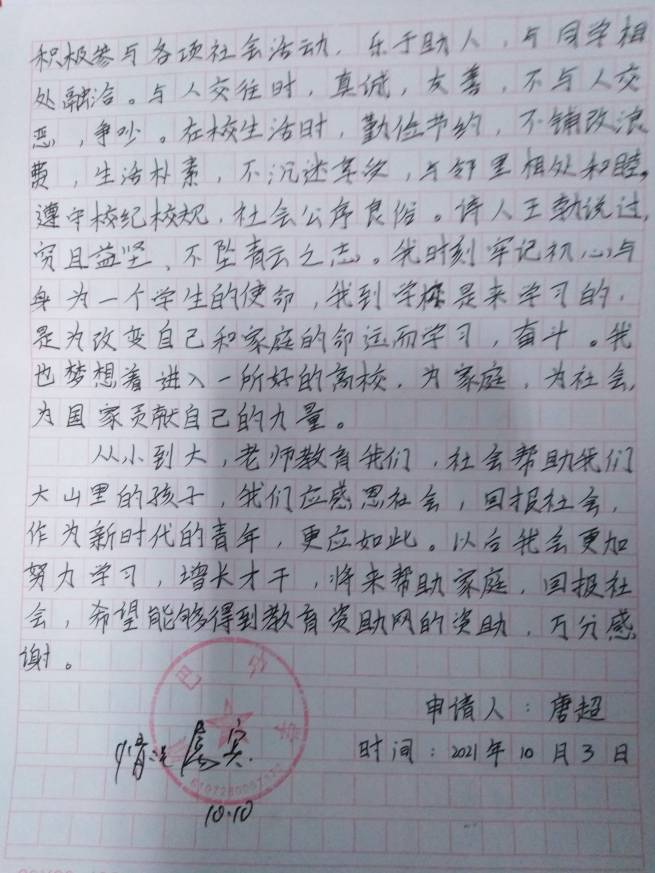 积极参与各项社会活动，乐于助人，与同学相
处融洽。与人交往时，真诚，友善，不与人交
恶，争吵。在校生活时，勤俭节约，不铺改浪
费，生活朴素，不沉迷享乐，与邻里相处和睦。
遵守校纪校规，社会公序良俗。诗人王勃说过，
穷且益坚，不坠青云之志。我时刻牢记初心与
身为一个学生的使命，我到学校是来学习的，
是为改变自己和家庭的命运而学习，奋斗。我
也梦想着进入一所好的高校，为家庭，为社会，
为国家贡献自己的力量。
从小到大，老师教育我们，社会帮助我们
大山里的孩子，我们应感恩社会，回报社会，
作为新时代的青年，更应如此。以后我会更加
努力学习，增长才干，将来帮助家庭，回报社
会，希望能够得到教育资助网的资助，万分感
谢。
申请人：唐超
情况属实
时间：2021年10月3日
10.10